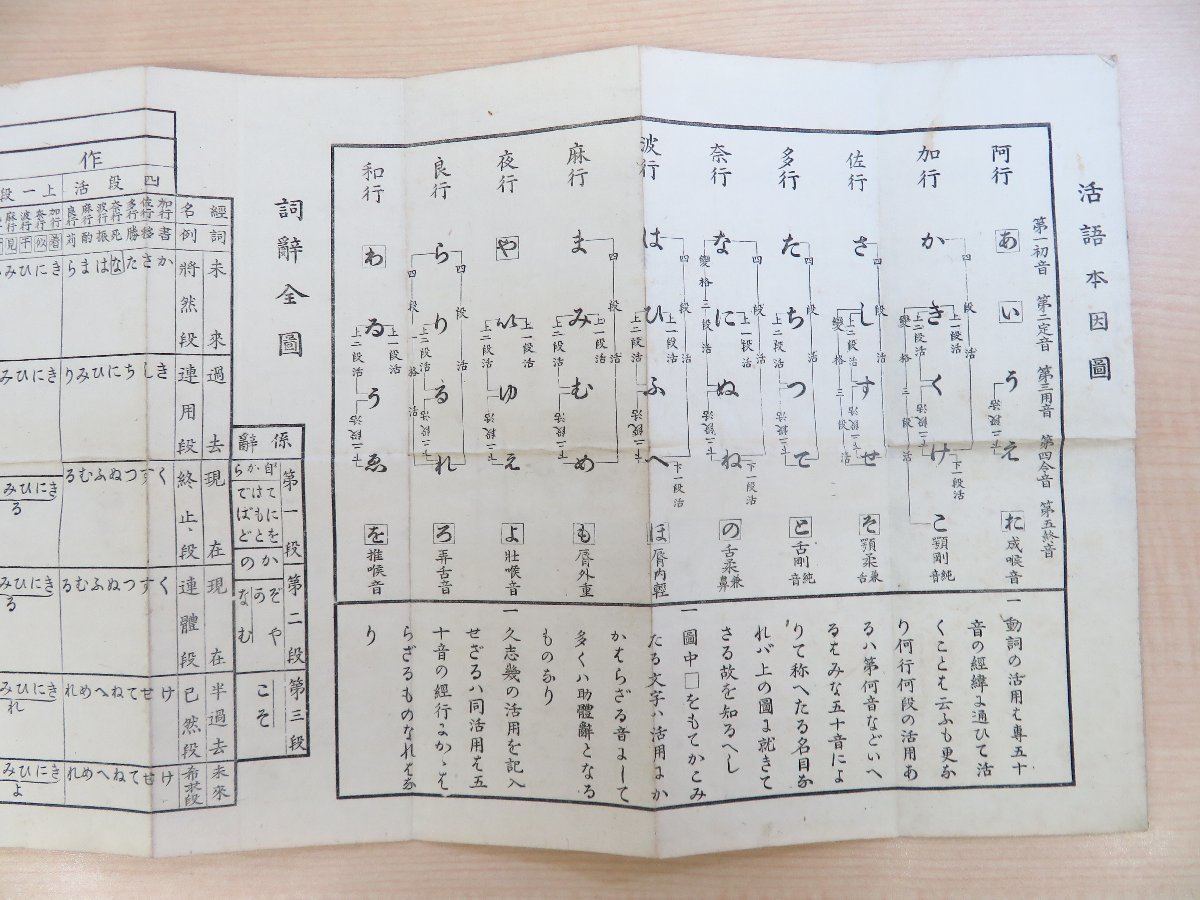 活語本因圖
第一初音 第二定音 第三用音 第四令音 第五終音
阿行 あ い う え お 成喉音
加行 か き く け こ 顎剛純音
四段活
上一段活
上二段活
下一段活
變格三段活
佐行 さ し す せ そ 顎柔兼舌
四段活
上二段活
變格三段活
多行 た ち つ て と 舌剛純音
四段活
上二段活
奈行 な に ぬ ね の 舌柔兼鼻
四段活
上一段活
變格三段活
下一段活
波行 は ひ ふ へ ほ 脣内輕
四段活
上一段活
上二段活
麻行 ま み む め も 脣外重
四段活
上一段活
上二段活
夜行 や い ゆ え よ 壯喉音
上一段活
上二段活
良行 ら り る れ ろ 弄舌音
四段活
上二段活
和行 わ ゐ う ゑ を 推喉音
上一段活
上二段活
一 動詞の活用は專五十
音の經緯に通ひて活
くことは云ふも更な
り何行何段の活用あ
るハ第何音などいへ
るはみな五十音によ
りて称へたる名目な
れバ上の圖に就きて
さる故を知るへし
一 圖中□をもてかこみ
たる文字ハ活用にか
かはらざる音にして
多くハ助體辭となる
ものなり
一 久志幾の活用を記入
せざるハ同活用を五
十音の經行にかゝは
らざるものなれはな
り
詞辭全圖
係辭
第一段 第二段 第三段
自から
てにを
はもと
でばど
か
の
ぞや
なむ
こそ
作
四段活
上一段
經名
詞例
加行 佐行 多行 奈行 波行 麻行 良行
書 勝 死 振 酌 苅
加行 奈行 波行 麻行
着 似 干 見
未來 將然段
かさたなはまら
きにひみ
過去 連用段
きしちにひみり
きにひみ
現在 終止段
くすつぬふむる
きにひみ
る
現在 連體段
くすつぬふむる
きにひみ
る
半過去 已然段
けせてねへめれ
きにひみ
れ
未來 希求段
けせてねへめれ
きにひみ
よ